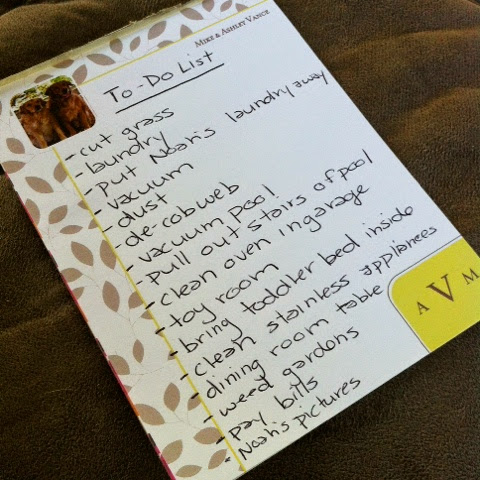 MIKE & ASHLEY VANCE
TO-DO LIST
- cut grass
- laundry
- put Noah's laundry away
- vacuum
- dust
- de-cobweb
- vacuum pool
- pull out stairs of pool
- clean oven in garage
- toy room
- bring toddler bed inside
- clean stainless appliances
- dining room table
- weed gardens
- pay bills
- Noah's pictures
A V M